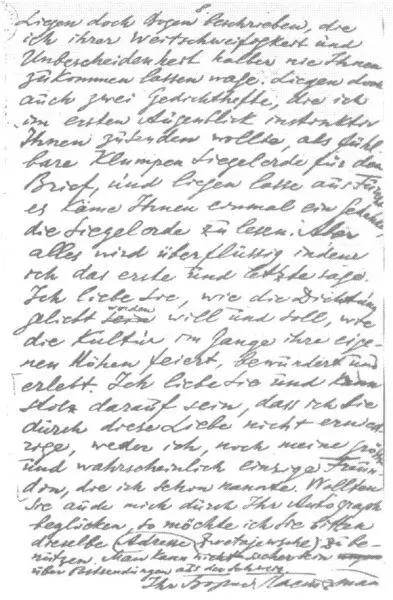 Liegen doch Bogen beschrieben, die
ich ihrer Weitschweifigkeit und
Unbescheidenheit halber nie Ihnen
zukommen lassen wage. Liegen doch
auch zwei Gedichthefte, die ich
im ersten Augenblick instruktiv
Ihnen zusenden wollte, als fühl-
bare Klumpen Siegelerde für den
Brief, und liegen lasse aus Furcht
es käme Ihnen einmal ein Gedanke,
die Siegelerde zu lesen. Aber
alles wird überflüssig indem
ich das erste und letzte sage.
Ich liebe Sie, wie die Dichtung
geliebt sein werden will und soll, wie
die Kultur im Gange ihre eige-
nen Höhen feiert, bewundert und
erlebt. Ich liebe Sie und kann
stolz darauf sein, dass ich Sie
durch diese Liebe nicht ernied-
rige, weder ich, noch meine größte
und wahrscheinlich einzige Freun-
din, die ich schon nannte. Wollten
Sie auch mich durch Ihr Autograph
beglücken, so möchte ich Sie bitten
dieselbe Adresse (Zwetajewsche) zu be-
nutzen. Man kann nicht sicher sein
über Postsendungen aus der Schweiz.
Ihr